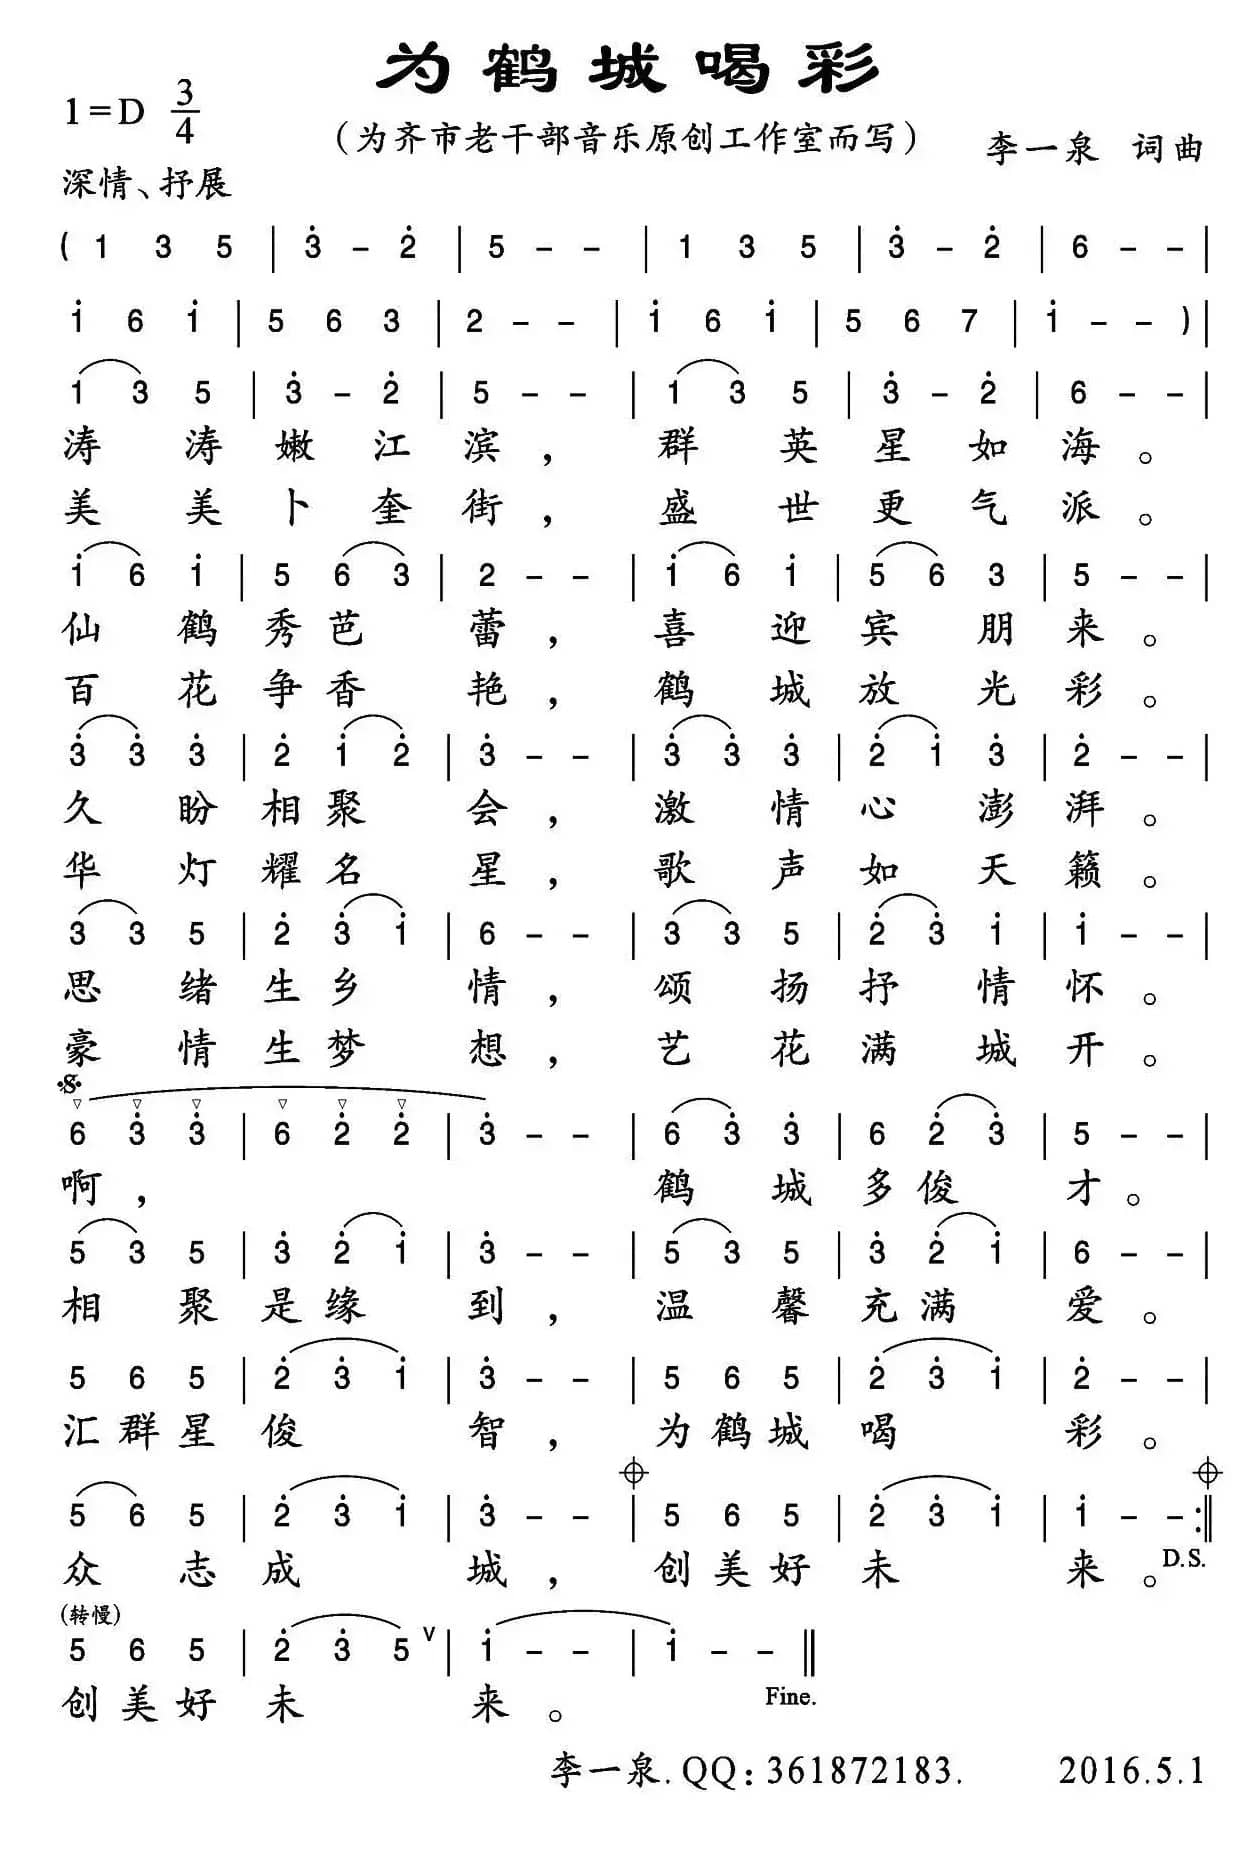 为鹤城喝彩
1=D 3/4
（为齐市老干部音乐原创工作室而写）
李一泉 词曲
深情、抒展
( 1 3 5 | 3̇ - 2̇ | 5 - - | 1 3 5 | 3̇ - 2̇ | 6 - - |
1̇ 6 1̇ | 5 6 3 | 2 - - | 1̇ 6 1̇ | 5 6 7 | 1̇ - - ) |
1 3 5 | 3̇ - 2̇ | 5 - - | 1 3 5 | 3̇ - 2̇ | 6 - - |
涛涛嫩江滨，群英星如海。
美美卜奎街，盛世更气派。
1̇ 6 1̇ | 5 6 3 | 2 - - | 1̇ 6 1̇ | 5 6 3 | 5 - - |
仙鹤秀芭蕾，喜迎宾朋来。
百花争香艳，鹤城放光彩。
3̇ 3̇ 3̇ | 2̇ 1̇ 2̇ | 3̇ - - | 3̇ 3̇ 3̇ | 2̇ 1̇ 3̇ | 2̇ - - |
久盼相聚会，激情心澎湃。
华灯耀名星，歌声如天籁。
3̇ 3̇ 5 | 2̇ 3̇ 1̇ | 6 - - | 3̇ 3̇ 5 | 2̇ 3̇ 1̇ | 1̇ - - |
思绪生乡情，颂扬抒情怀。
豪情生梦想，艺花满城开。
6 3̇ 3̇ | 6 2̇ 2̇ | 3̇ - - | 6 3̇ 3̇ | 6 2̇ 3̇ | 5 - - |
啊，鹤城多俊才。
5 3 5 | 3̇ 2̇ 1̇ | 3̇ - - | 5 3 5 | 3̇ 2̇ 1̇ | 6 - - |
相聚是缘到，温馨充满爱。
5 6 5 | 2̇ 3̇ 1̇ | 3̇ - - | 5 6 5 | 2̇ 3̇ 1̇ | 2̇ - - |
汇群星俊智，为鹤城喝彩。
5 6 5 | 2̇ 3̇ 1̇ | 3̇ - - | 5 6 5 | 2̇ 3̇ 1̇ | 1̇ - - :||
众志成城，创美好未来。D.S.
(转慢)
5 6 5 | 2̇ 3̇ 5 ∨ | 1̇ - - | 1̇ - - ||
创美好未来。 Fine.
李一泉.QQ:361872183. 2016.5.1